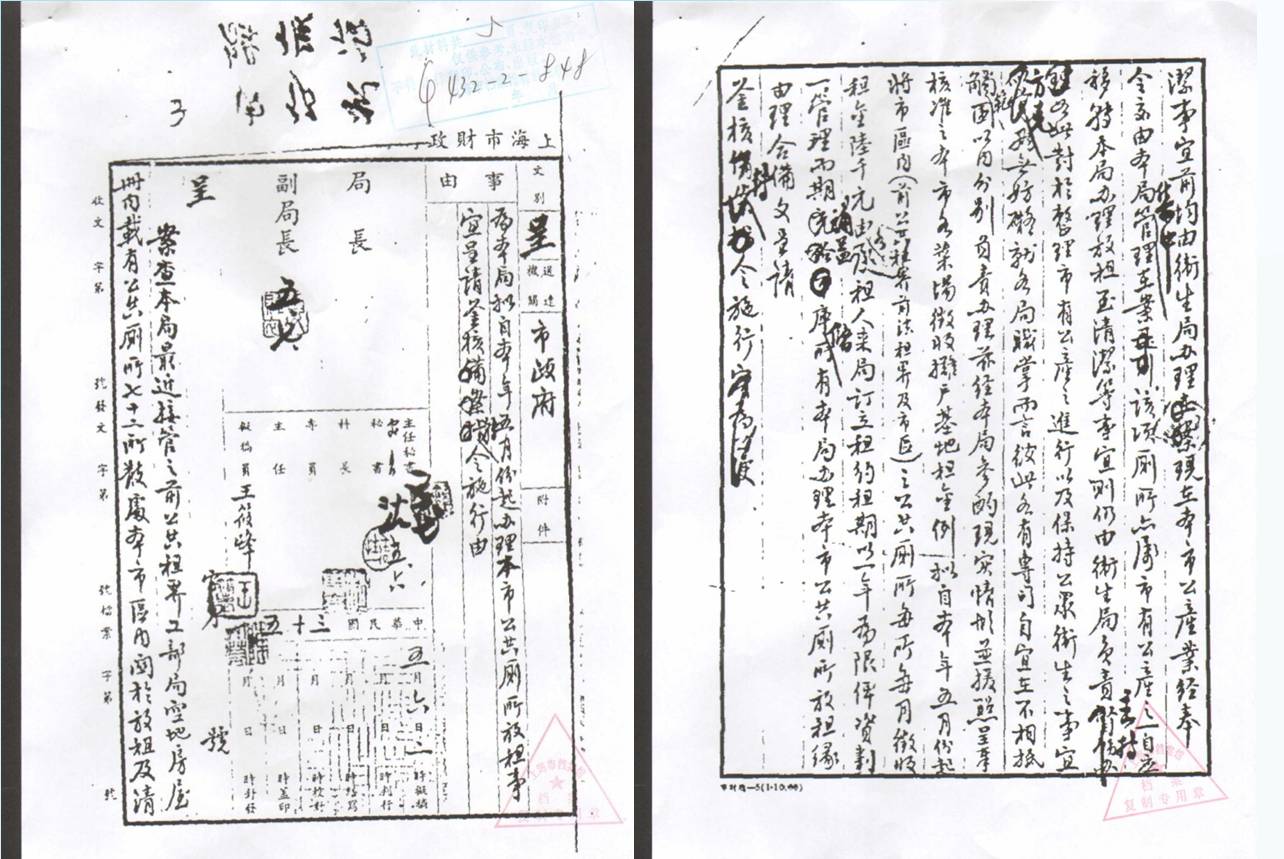 432-2-848
上海市財政
文別
呈
送達機關
市政府
附件
事由
為本局拟自本年五月份起办理本市公共廁所放租事
宜呈請鉴核備
令施行由
局長
副局長
主任秘書
秘書
科長
專員
主任
擬稿員 王筱峰
中華民國三十五
五月六日
時擬稿
月 日 時判行
月 日 時繕寫
月 日 時校對
月 日 時蓋印
月 日 時封發
收文 字第 號
發文 字第 號
檔案 字第 號
呈
號
案查本局最近接管之前公共租界工部局空地房屋
冊內載有公共廁所七十二所散處本市區內関於放租及清
潔事宜前均由衛生局办理現在本市公產業經奉
令交由本局管理在案該項廁所亦属市有公產之一自應
移轉本局办理放租至清潔等事宜則仍由衛生局負責
此對於整理市有公產之進行以及保持公眾衛生之事宜
就各局職掌而言彼此各有專司自宜在不相抵
觸範圍以內分別負責办理茲經本局参酌現实情形並援照呈奉
核准之本市各菜場徵收攤戶基地租金例拟自本年五月份起
將市區內(前公共租界前法租界及市區)之公共廁所每所每月徵收
租金陸千元由承租人来局訂立租約租期以一年為限俾資劃
一管理而期庫所有本局办理本市公共廁所放租緣
由理合備文呈請
鉴核備令施行
市財局—5(1·10,㈱)
档案
复制专用章
档案
复制专用章